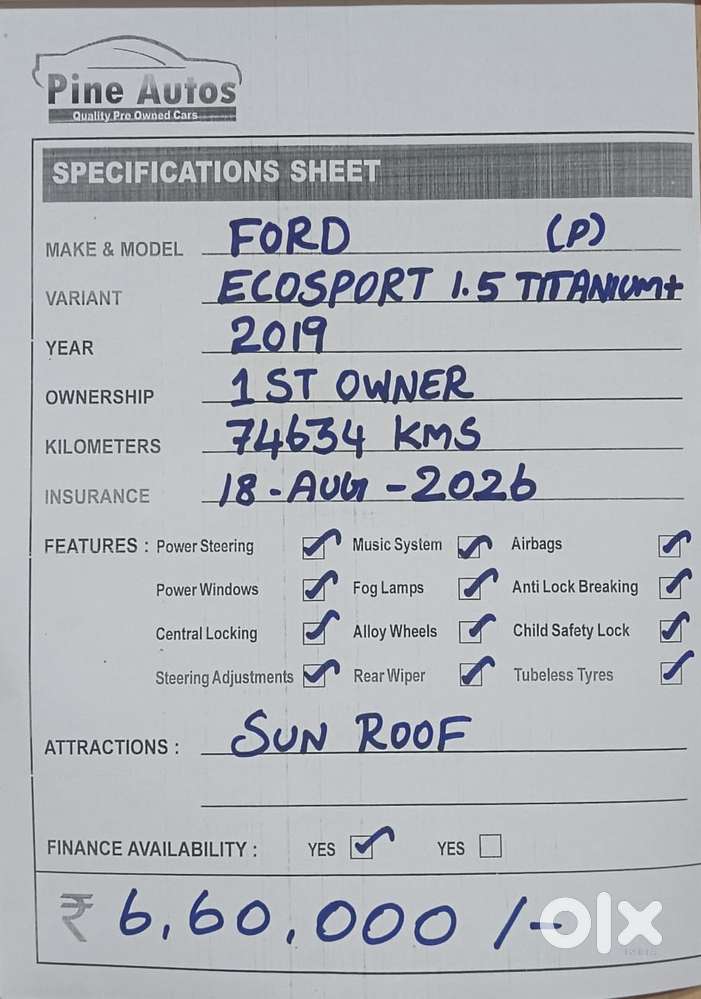 Pine Autos
Quality Pre Owned Cars
SPECIFICATIONS SHEET
MAKE & MODEL FORD (P)
VARIANT ECOSPORT 1.5 TITANIUM+
YEAR 2019
OWNERSHIP 1ST OWNER
KILOMETERS 74634 KMS
INSURANCE 18-AUG-2026
FEATURES : Power Steering Music System Airbags
Power Windows Fog Lamps Anti Lock Breaking
Central Locking Alloy Wheels Child Safety Lock
Steering Adjustments Rear Wiper Tubeless Tyres
ATTRACTIONS : SUN ROOF
FINANCE AVAILABILITY : YES YES
₹ 6,60,000/-
olx